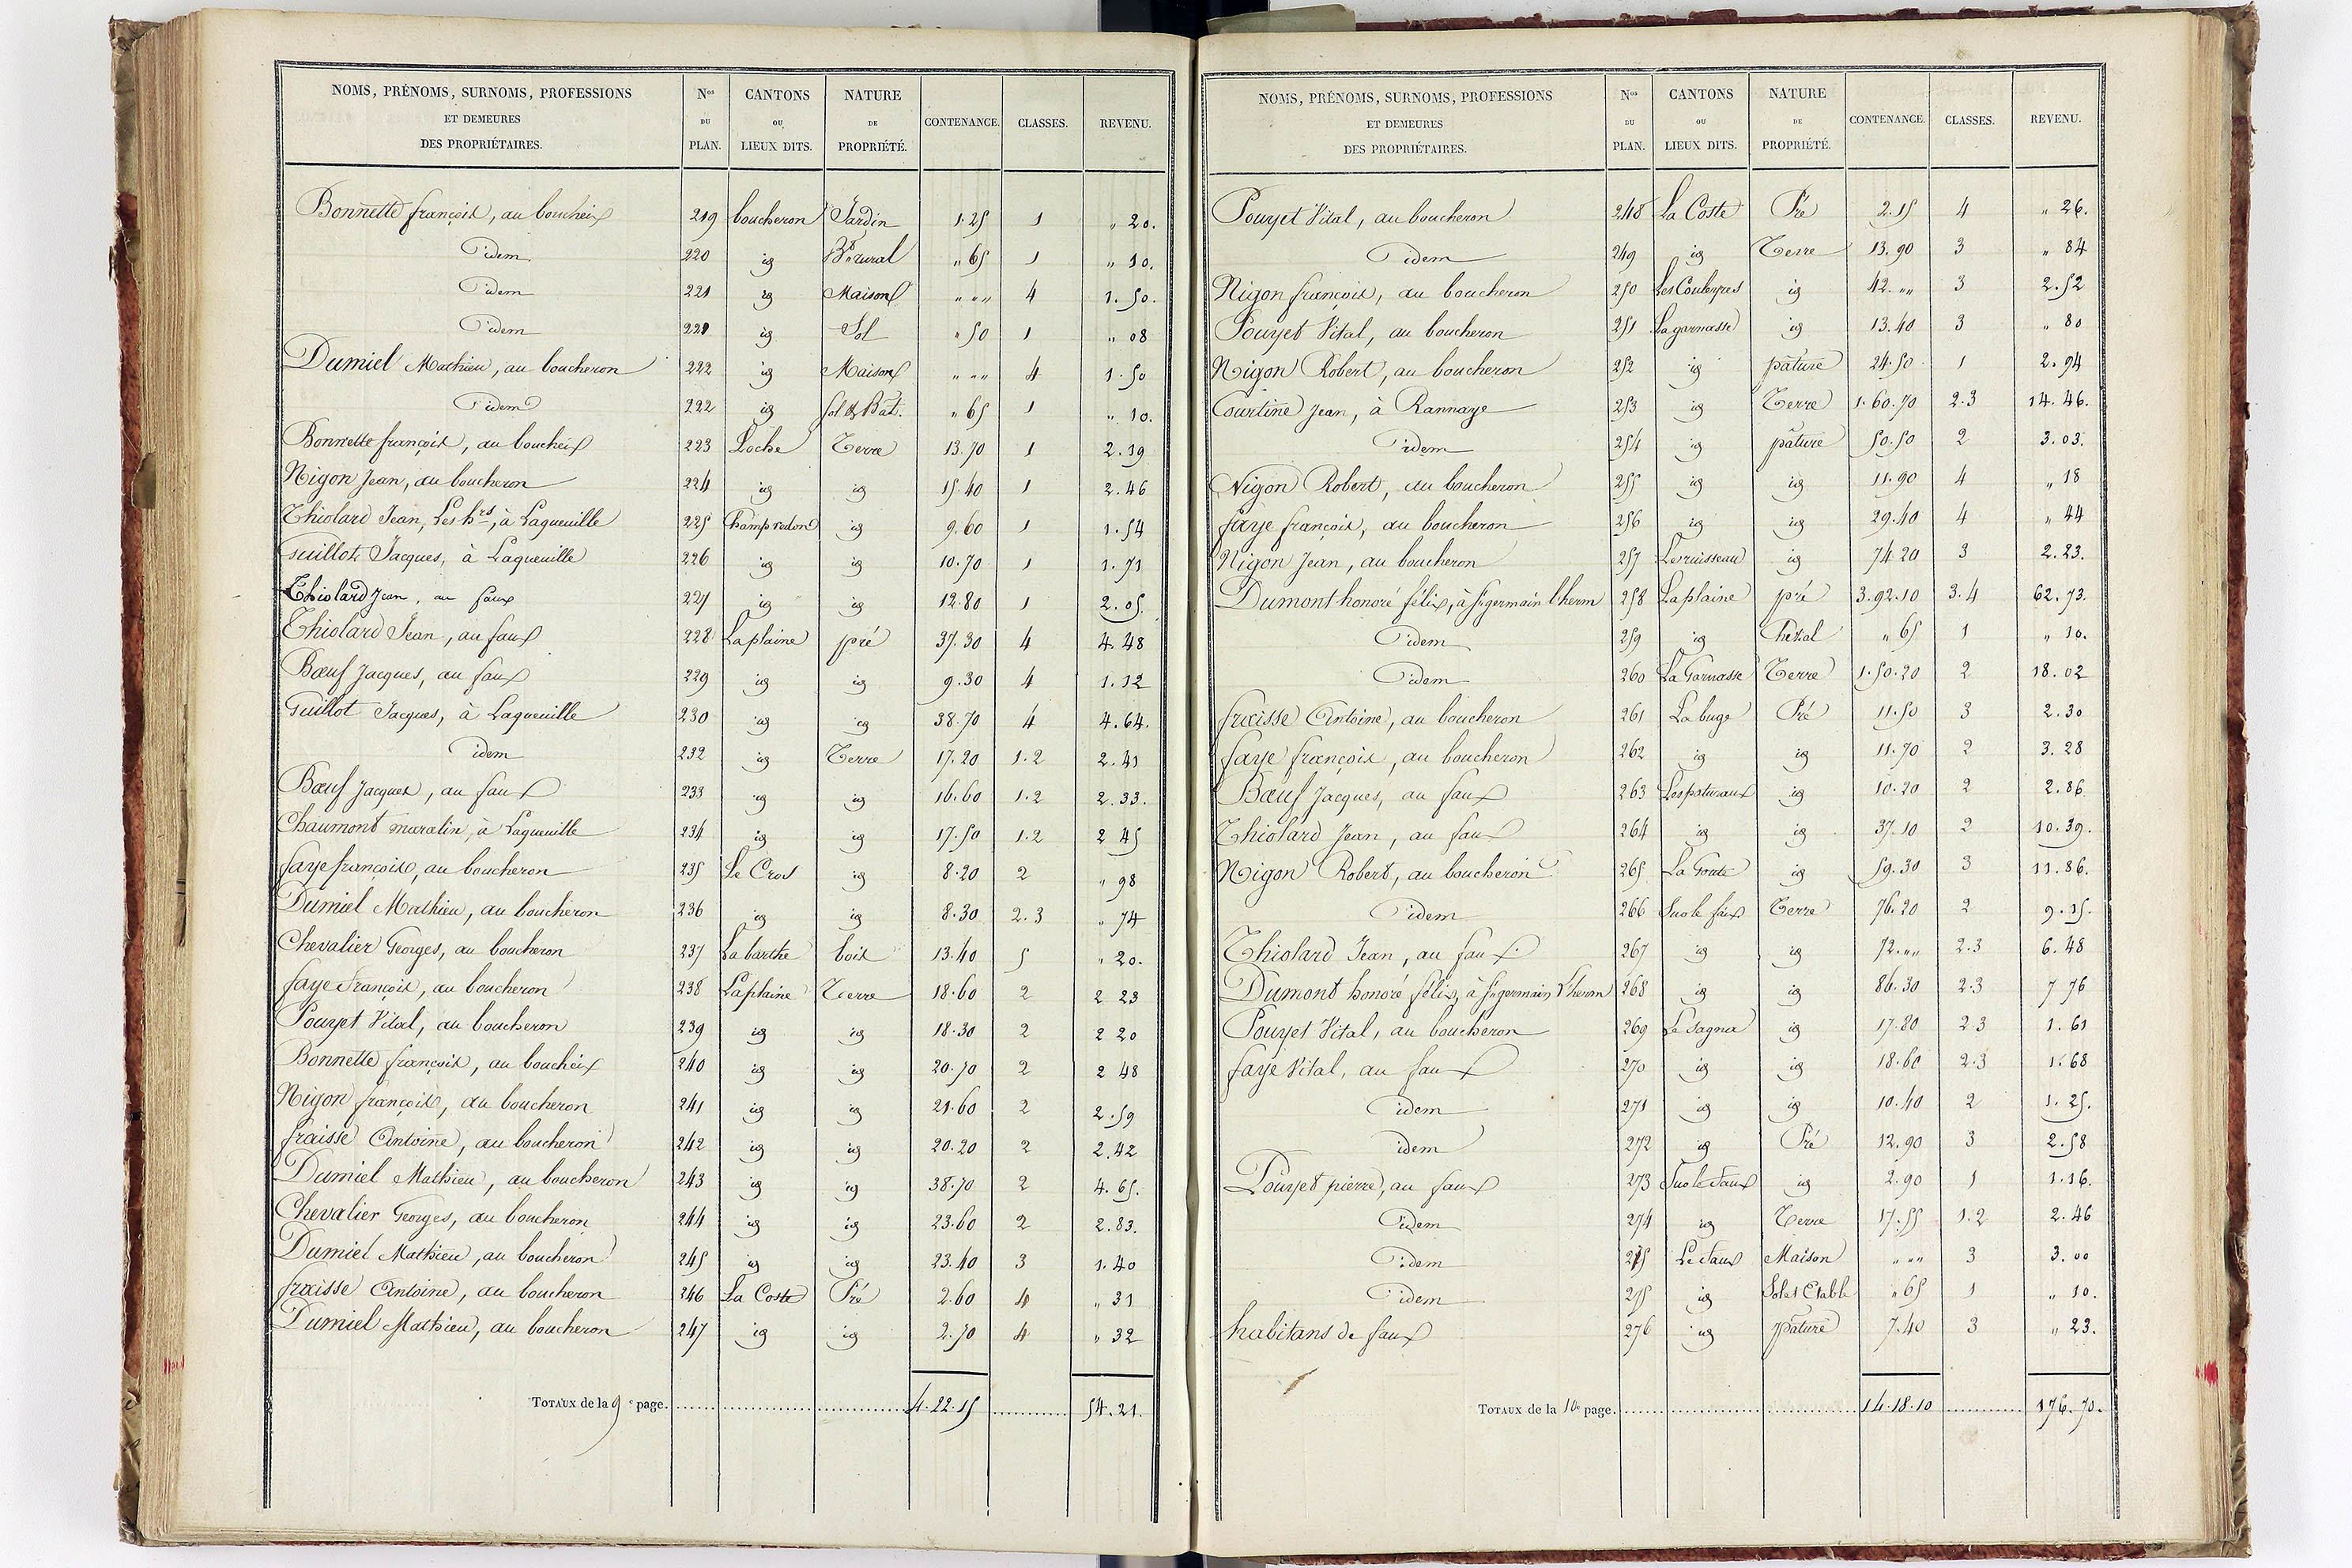 NOMS, PRÉNOMS, SURNOMS, PROFESSIONS ET DEMEURES DES PROPRIÉTAIRES. Nos DU PLAN. CANTONS OU LIEUX DITS. NATURE DE PROPRIÉTÉ. CONTENANCE. CLASSES. REVENU.
Bonnette françois, au boucheix 219 boucheron Jardin 1.25 1 " 20.
Idem 220 id Bt rural " 65 1 " 10.
Idem 221 id Maison " " " 4 1.50.
Idem 221 id Sol " 50 1 " 08
Dumiel Mathieu, au boucheron 222 id Maison " " " 4 1.50
Idem 222 id sol & Bat. " 65 1 " 10.
Bonnette françois, au boucheix 223 Loche Terre 13.70 1 2.19
Nigon Jean, au boucheron 224 id id 15.40 1 2.46
Thiolard Jean, Les hrs, à Laqueuille 225 Champ redond id 9.60 1 1.54
Guillot Jacques, à Laqueuille 226 id id 10.70 1 1.71
Thiolard Jean, au faux 227 id id 12.80 1 2.05.
Thiolard Jean, au faux 228 La plaine pré 37.30 4 4.48
Bœuf Jacques, au faux 229 id id 9.30 4 1.12
Guillot Jacques, à Laqueuille 230 id id 38.70 4 4.64.
idem 232 id Terre 17.20 1.2 2.41
Bœuf Jacques, au faux 233 id id 16.60 1.2 2.33.
Chaumont maralin, à Laqueuille 234 id id 17.50 1.2 2 45
faye françois, au boucheron 235 Le Cros id 8.20 2 " 98
Dumiel Mathieu, au boucheron 236 id id 8.30 2.3 " 74
Chevalier Georges, au boucheron 237 La barthe bois 13.40 5 " 20.
faye françois, au boucheron 238 La plaine Terre 18.60 2 2 23
Pouyet Vital, au boucheron 239 id id 18.30 2 2 20
Bonnette françois, au boucheix 240 id id 20.70 2 2 48
Nigon françois, au boucheron 241 id id 21.60 2 2.59
fraisse Antoine, au boucheron 242 id id 20.20 2 2.42
Dumiel Mathieu, au boucheron 243 id id 38.70 2 4.65.
Chevalier Georges, au boucheron 244 id id 23.60 2 2.83.
Dumiel Mathieu, au boucheron 245 id id 23.40 3 1.40
fraisse Antoine, au boucheron 246 La Coste Pré 2.60 4 " 31
Dumiel Mathieu, au boucheron 247 id id 2.70 4 " 32
TOTAUX de la 9e page. 4.22.15 54.21.
NOMS, PRÉNOMS, SURNOMS, PROFESSIONS ET DEMEURES DES PROPRIÉTAIRES. Nos DU PLAN. CANTONS OU LIEUX DITS. NATURE DE PROPRIÉTÉ. CONTENANCE. CLASSES. REVENU.
Pouyet Vital, au boucheron 248 La Coste Pré 2.15 4 " 26.
Idem 249 id Terre 13.90 3 " 84
Nigon françois, au boucheron 250 Les Couleyres id 42. " " 3 2.52
Pouyet Vital, au boucheron 251 La garnasse id 13.40 3 " 80
Nigon Robert, au boucheron 252 id pâture 24.50 1 2.94
Courtine Jean, à Rannaye 253 id Terre 1.60.70 2.3 14.46.
Idem 254 id pâture 50.50 2 3.03.
Nigon Robert, au boucheron 255 id id 11.90 4 " 18
faye françois, au boucheron 256 id id 29.40 4 " 44
Nigon Jean, au boucheron 257 Le ruisseau id 74 20 3 2.23.
Dumont honoré félix, à St germain l'herm 258 La plaine pré 3.92.10 3.4 62.73.
Idem 259 id " 65 1 " 10.
Idem 260 La Garnasse Terre 1.50.20 2 18.02
fraisse Antoine, au boucheron 261 La buge Pré 11.50 3 2.30
faye françois, au boucheron 262 id id 11.70 2 3.28
Bœuf Jacques, au faux 263 Les patureaux id 10.20 2 2.86
Thiolard Jean, au faux 264 id id 37.10 2 10.39.
Nigon Robert, au boucheron 265 La Goute id 59.30 3 11.86.
Idem 266 Suo le faux Terre 76.20 2 9.15.
Thiolard Jean, au faux 267 id id 72. " " 2.3 6.48
Dumont honoré félix, à St germain L'herm 268 id id 86.30 2.3 7 76
Pouyet Vital, au boucheron 269 Le Sagna id 17.80 2.3 1.61
faye Vital, au faux 270 id id 18.60 2.3 1.68
idem 271 id id 10.40 2 1.25.
idem 272 id Pré 12.90 3 2.58
Pouyet pierre, au faux 273 Suo le faux id 2.90 1 1.16.
Idem 274 id Terre 17.55 1.2 2.46
Idem 275 Le faux Maison " " " 3 3.00
Idem 275 id Sol et Etable " 65 1 " 10.
habitans de faux 276 id pature 7.40 3 " 23.
TOTAUX de la 10e page. 14.18.10 176.70.